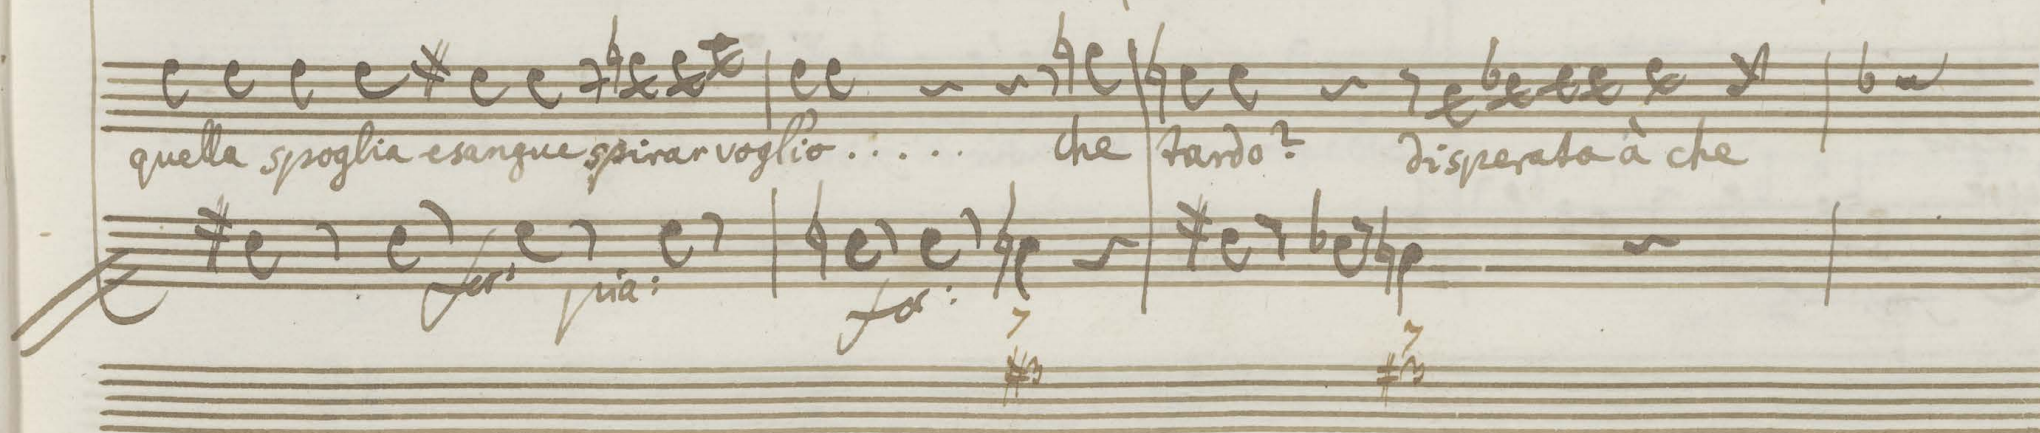 quella spoglia esangue spirar voglio..... che tardo? disperata à che
for: pia: for:
7 7
#3 #3